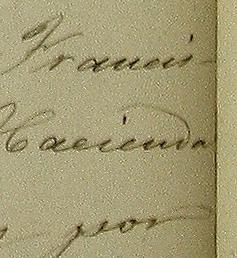 Francis-
Hacienda
por